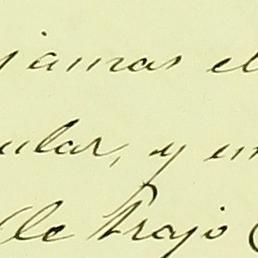 jamas el
ular, y en
de trajo